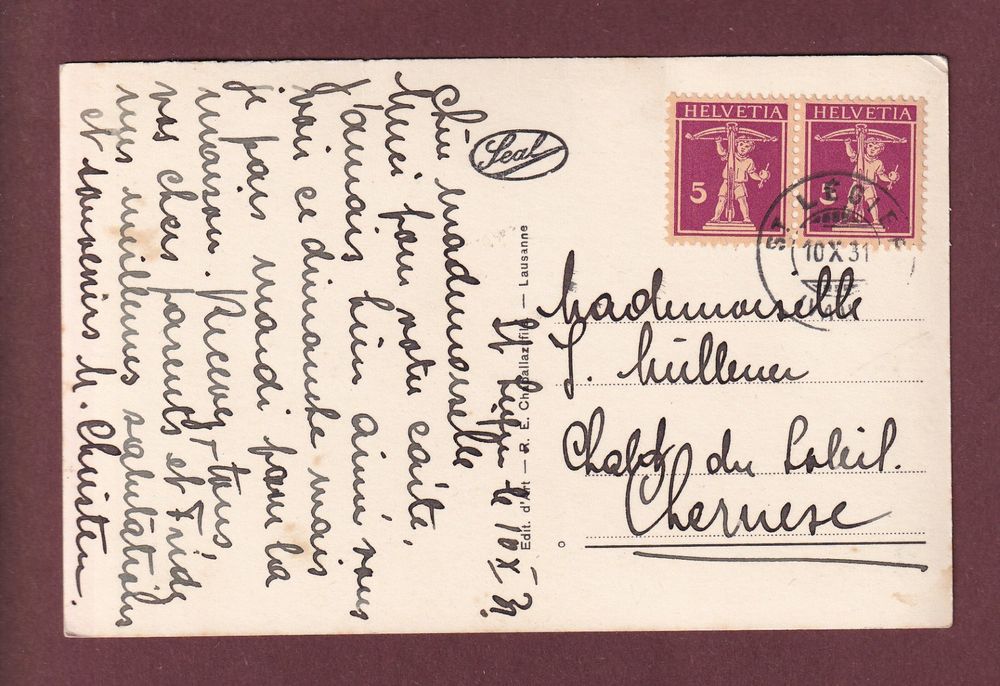 St Légier le 10 X 31
Chère Mademoiselle
Merci pour votre carte,
j'aurais bien aimé vous
voir ce dimanche mais
je pars mardi pour la
maison. Recevez tous,
vos chers parents et Frieda
nos meilleures salutations
et souvenirs M. Christen.
Seal
Edit. d'Art — R. E. Chapallaz fils — Lausanne
HELVETIA
5
HELVETIA
5
ST. LÉGIER
10 X 31
Mademoiselle
J. Müllener
Chalet du Soleil.
Chernese